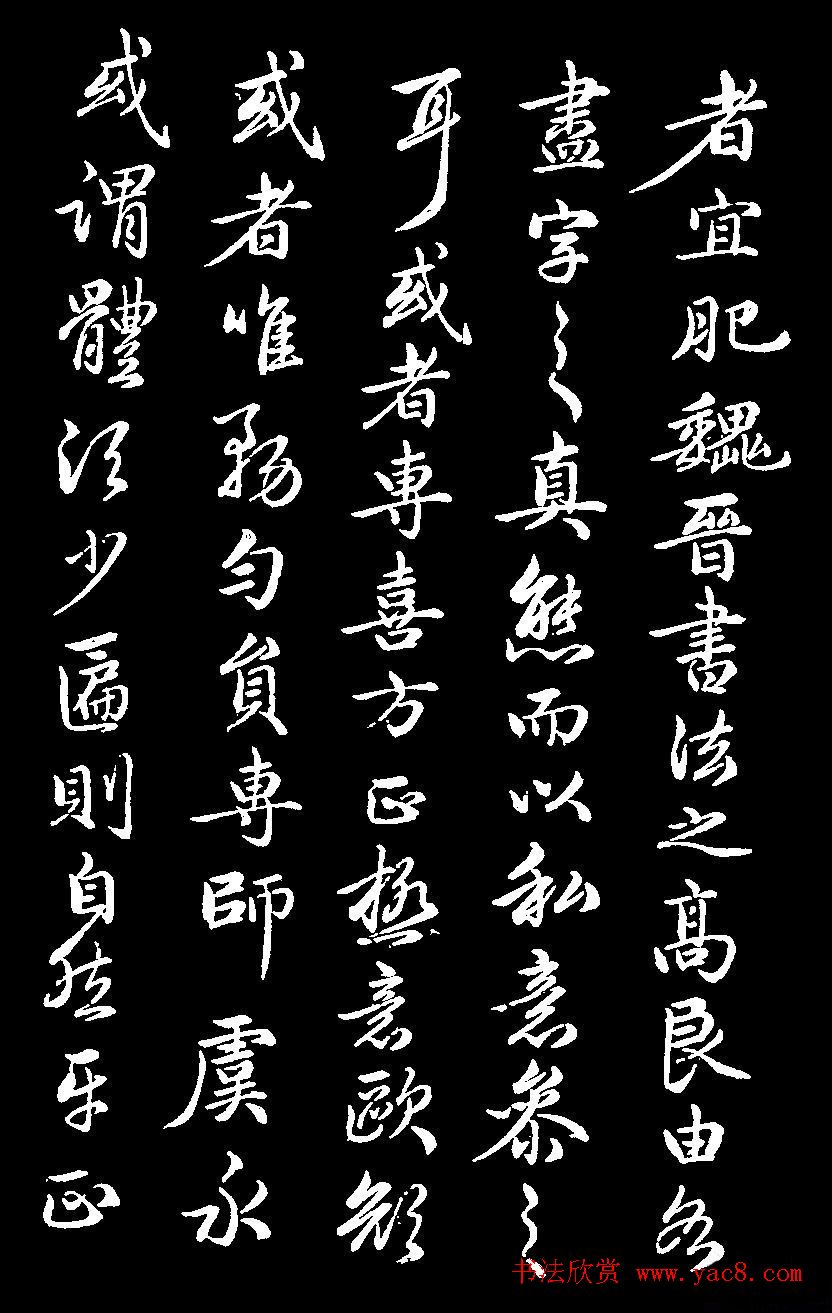 者宜肥魏晉書法之高良由各
盡字之真態而以私意參之
耳或者專喜方正極意歐顏
或者唯務勻員專師虞永
或謂體須少匾則自然平正
书法欣赏 www.yac8.com